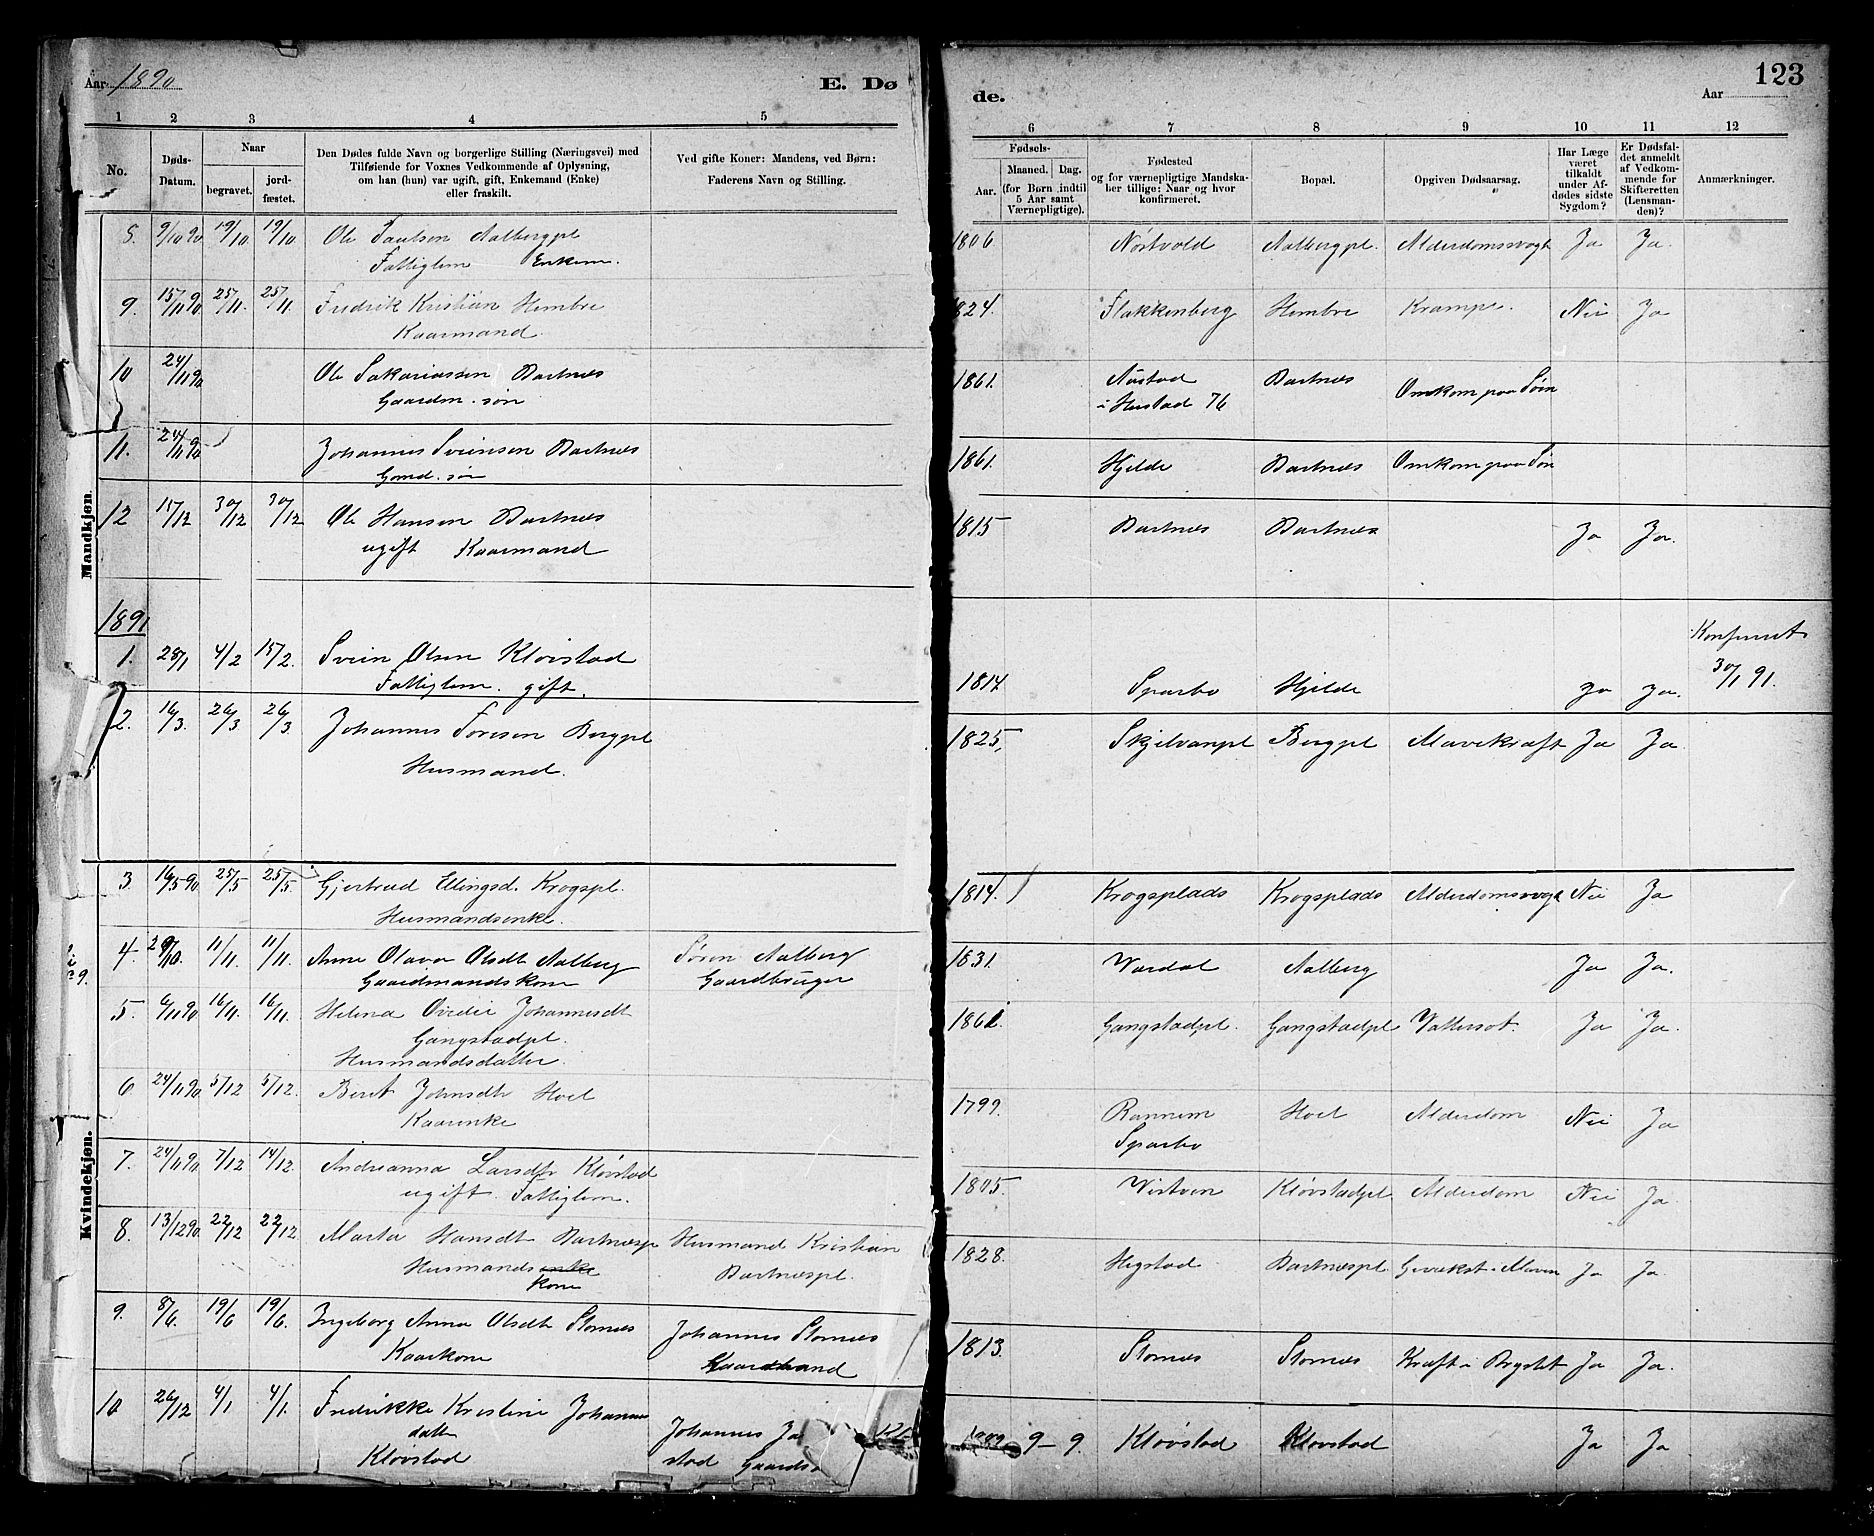 Aar 1890
E. Dø
de.
Aar
123
1 2 3 4 5 6 7 8 9 10 11 12
No.
Døds-
Datum.
Naar
begravet.
jord-
fæstet.
Den Dødes fulde Navn og borgerlige Stilling (Næringsvei) med
Tilføiende for Voxnes Vedkommende af Oplysning,
om han (hun) var ugift, gift, Enkemand (Enke)
eller fraskilt.
Ved gifte Koner: Mandens, ved Børn:
Faderens Navn og Stilling.
Fødsels-
Aar.
Maaned. Dag.
(for Børn indtil
5 Aar samt
Værnepligtige).
Fødested
og for værnepligtige Mandska-
ber tillige: Naar og hvor
konfirmeret.
Bopæl.
Opgiven Dødsaarsag.
Har Læge
været
tilkaldt
under Af-
dødes sidste
Sygdom?
Er Dødsfal-
det anmeldt
af Vedkom-
mende for
Skifteretten
(Lensman-
den)?
Anmærkninger.
Mandkjøn.
8. 9/10 90 19/10. 19/10. Ole Paulsen Aalbergpl 1806 Nostvold Aalbergpl. Alderdomssvagh Ja Ja.
Fattiglem Enkem.
9. 15/11 90 25/11. 25/11. Fredrik Kristian Hembre 1824. Flakkenberg Hembre Krampe. Nei Ja
Kaarmand.
10 24/11 90 Ole Sakariassen Bartnes 1861. Austad Bartnes Omkom paa Søen
Gaardm. søn i Hustad 76
11. 24/11 90 Johannes Sveinsen Bartnes 1861. Hjelde Bartnes Omkom paa Søn
Gmd. søn
12 15/12 30/12 30/12 Ole Hansen Bartnes 1815 Bartnes Bartnes Ja Ja.
ugift Kaarmand
1891
1. 28/1 4/2 15/2. Svein Olsen Klovstad Konfirmert
Fattiglem. gift. 1814 Sparbo Hjelde Ja Ja. 30/1 91.
2. 16/3. 26/3 26/3. Johannes Toresen Bergpl 1825, Skjelvanpl Bergpl Mavekræft Ja Ja
Husmand.
Kvindekjøn.
3. 16/5 90 25/5 25/5. Gjertrud Ellingsd. Krogspl. 1814. Krogsplads Krogsplads Alderdomssvagh Nei Ja
Husmandsenke.
4. 29/10. 11/11. 11/11. Anne Olava Olsdt Aalberg Søren Aalberg 1831. Værdal Aalberg Ja Ja.
Gaardmandskone Gaardbruger
5. 6/11 90 16/11. 16/11. Helena Ovidie Johannesdt 1861. Gangstadpl. Gangstadpl Vattersot. Ja Ja.
Gangstadpl.
Husmandsdatter.
6. 24/11 90 5/12 5/12. Berit Johnsdt Hoel 1799. Rannem Hoel Alderdom Nei Ja
Kaarenke Sparbo
7. 24/11 90 7/12 14/12. Andrianna Larsdt Klovstad 1805. Vistven Klovstadpl Alderdom Nei Ja.
ugift. Fattiglem.
8. 13/12 90. 22/12 22/12. Marta Hansdt Bartnespl Husmand Kristian 1828. Hegstad Bartnespl. Gevækst i Maven Ja Ja.
Husmandsenke Bartnespl.
kone
9. 8/6. 19/6 19/6. Ingeborg Anna Olsdt Stornes Johannes Stornes 1813. Stornes Stornes Kræft i Brystet Ja Ja.
Kaarkone Kaarmand
10 26/12 4/1 4/1. Fredrikke Kristine Johannes Johannes Ja 9 - 9. Klovstad Klovstad Ja Ja
datte
Klovstad stad Gaards